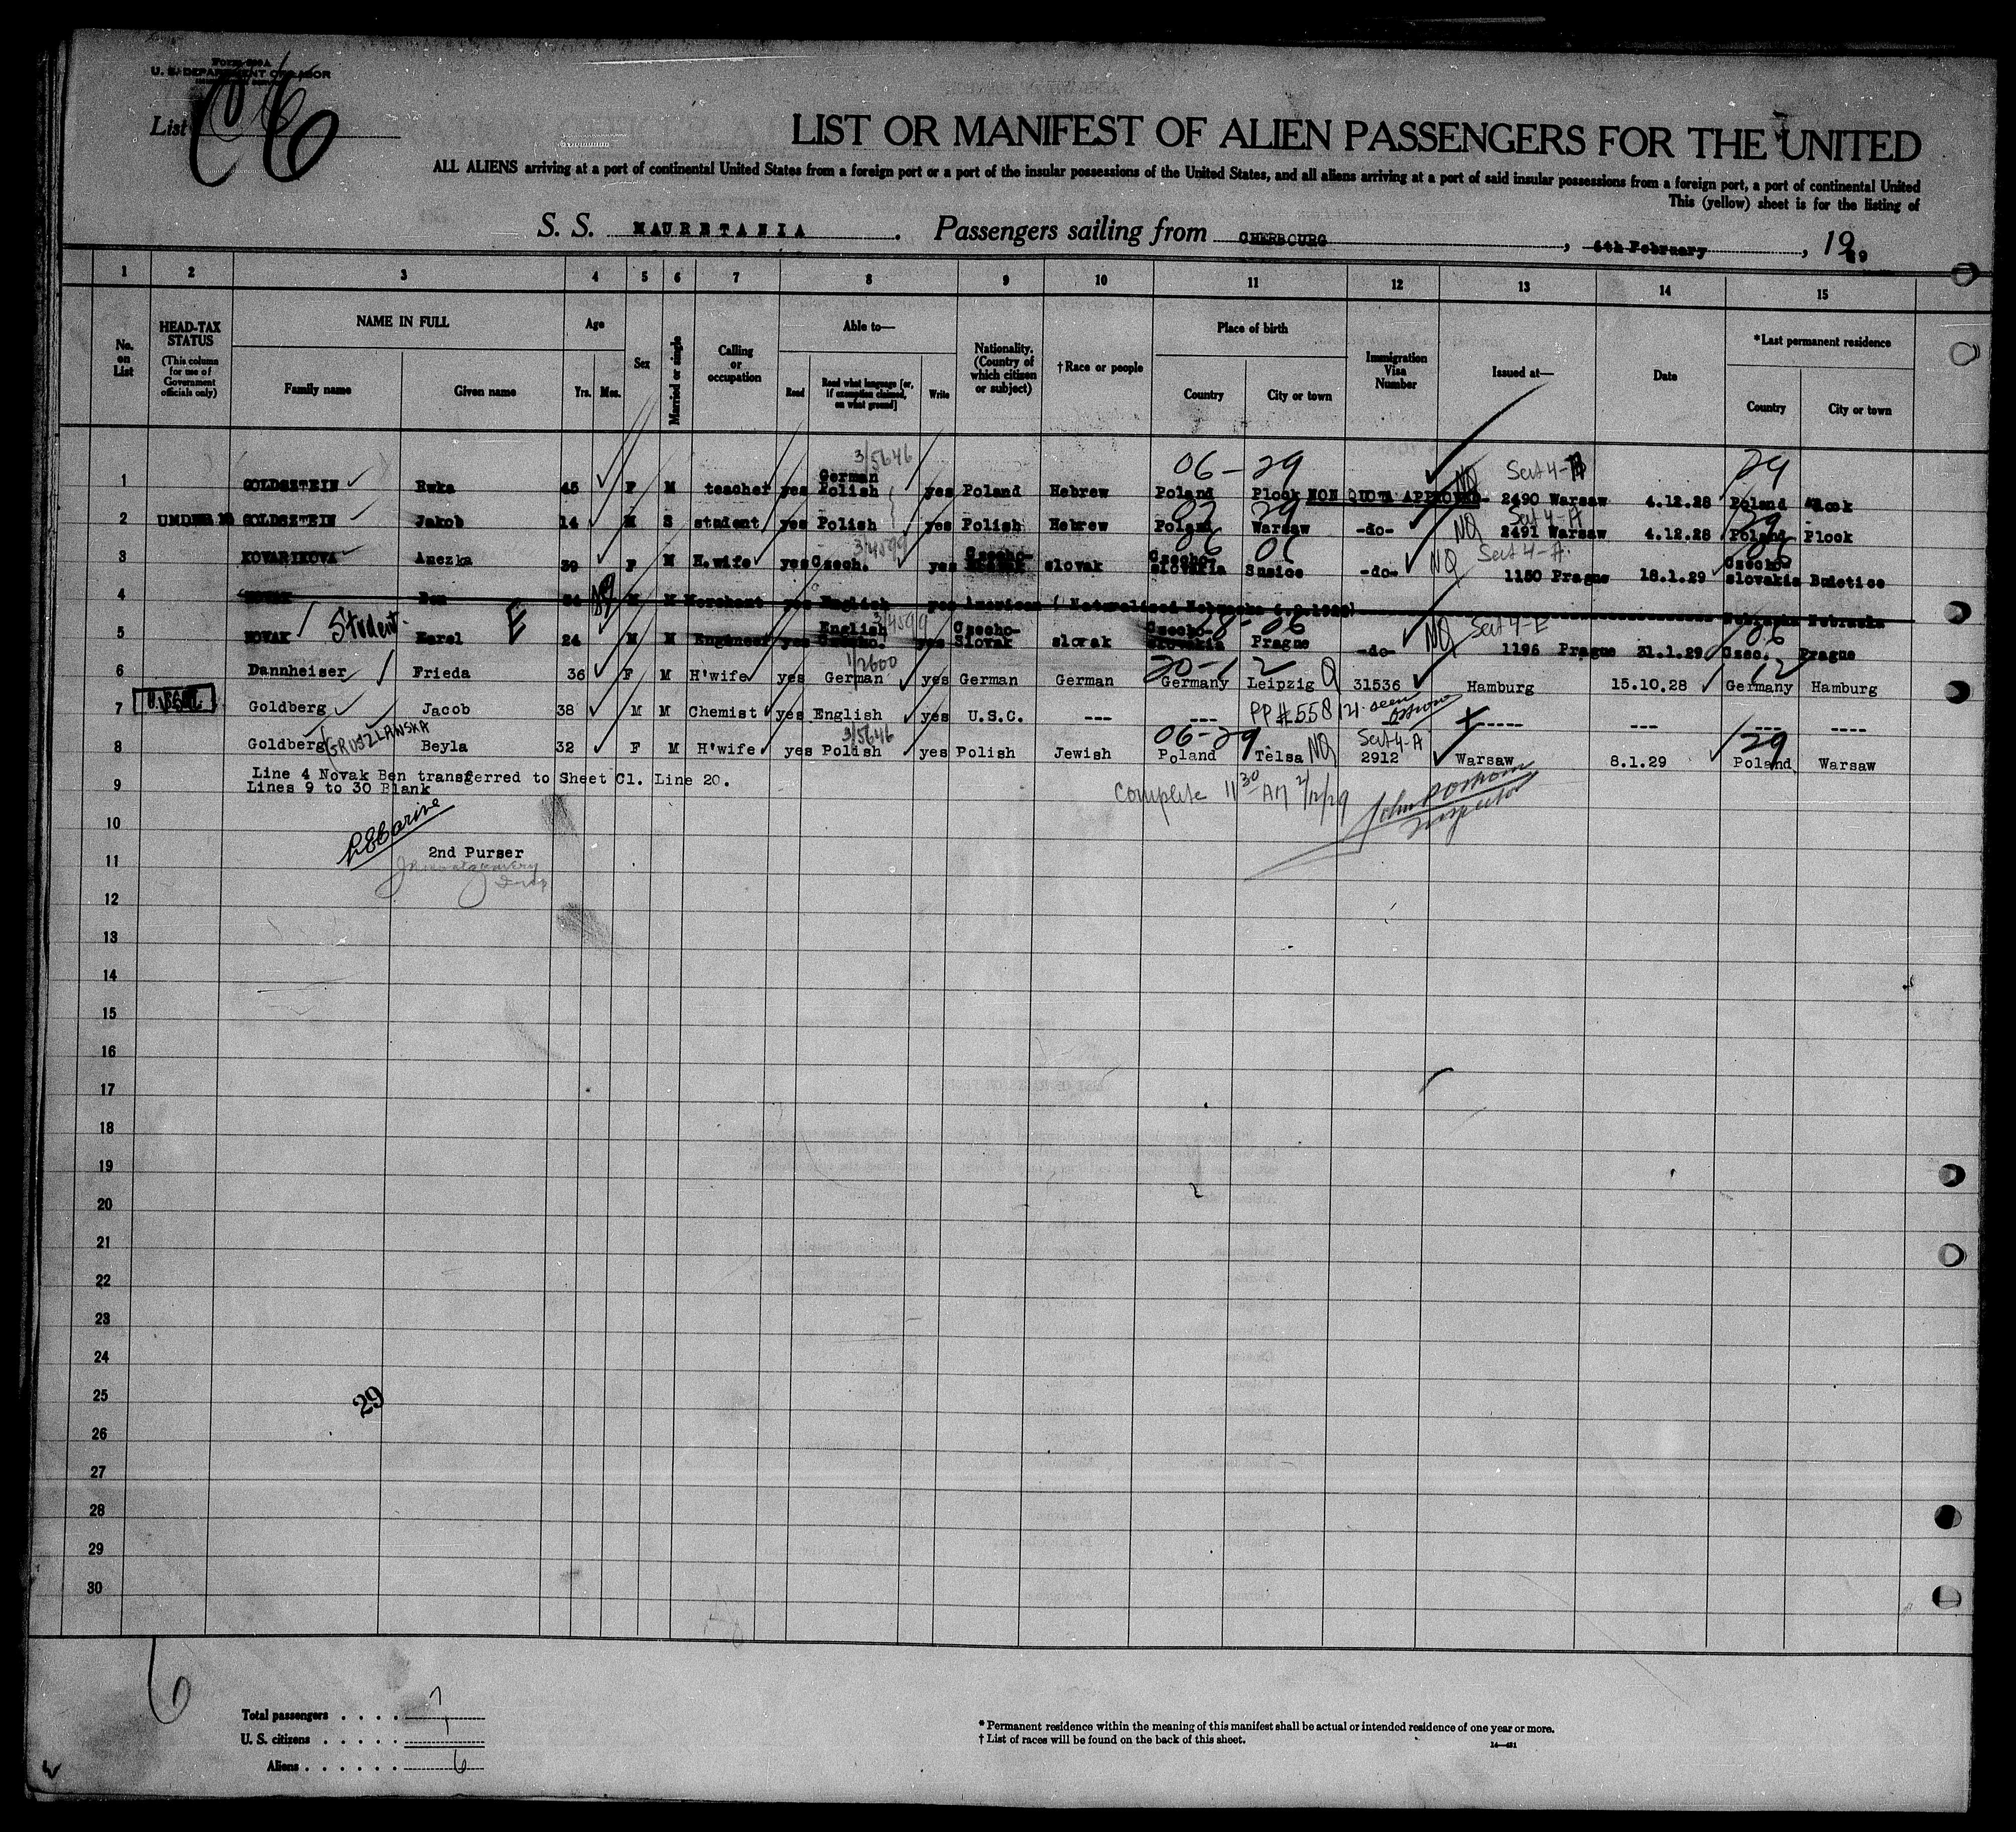 FORM 500 A
U. S. DEPARTMENT OF LABOR
List C 6
LIST OR MANIFEST OF ALIEN PASSENGERS FOR THE UNITED
ALL ALIENS arriving at a port of continental United States from a foreign port or a port of the insular possessions of the United States, and all aliens arriving at a port of said insular possessions from a foreign port, a port of continental United
This (yellow) sheet is for the listing of
S. S. MAURETANIA. Passengers sailing from CHERBOURG, 6th February, 1929
1 2 3 4 5 6 7 8 9 10 11 12 13 14 15
No. on List
HEAD-TAX STATUS (This column for use of Government officials only)
NAME IN FULL
Family name Given name
Age
Yrs. Mos.
Sex
Married or single
Calling or occupation
Able to—
Read Read what language [or, if exemption claimed, on what ground] Write
Nationality. (Country of which citizen or subject)
†Race or people
Place of birth
Country City or town
Immigration Visa Number
Issued at—
Date
*Last permanent residence
Country City or town
3/5646 06-29 Sect 4-A 29
1 GOLDSZTEIN Rwka 45 F M teacher yes German Polish yes Poland Hebrew Poland Plock NON QUOTA APPROVED NQ 2490 Warsaw 4.12.28 Poland Plock
2 UNDER 16 GOLDSZTEIN Jakob 14 M S student yes Polish yes Polish Hebrew Poland Warsaw -do- NQ Sect 4-A 2491 Warsaw 4.12.28 Poland Plock
3 KOVARIKOVA Anezka 39 F M H.wife yes Czech. 3/4599 yes Czecho- slovak Czecho- slovakia Susice -do- NQ Sect 4-A 1150 Prague 18.1.29 Czecho slovakia
4 NOVAK Ben M M Merchant yes English yes American Nebraska Nebraska
5 NOVAK Student Karel E 24 M M Engineer yes English Czecho. 3/4599 yes Czecho- Slovak slovak Czecho- Slovakia Prague -do- NQ Sect 4-E 1196 Prague 31.1.29 Czec. Prague
6 Dannheiser Frieda 36 F M H'wife yes German 1/2600 yes German German Germany Leipzig Q 31536 Hamburg 15.10.28 Germany Hamburg
7 Goldberg Jacob 38 M M Chemist yes English yes U.S.C. --- --- PP# 558121 seen ----- --- --- ----
8 Goldberg (GRUSZLAWSKA Beyla 32 F M H'wife yes Polish 3/5646 yes Polish Jewish Poland 06-29 Telsa NQ Sect 4-A 2912 Warsaw 8.1.29 Poland 29 Warsaw
Line 4 Novak Ben transferred to Sheet Cl. Line 20.
9 Lines 9 to 30 Blank
Complete 11 30 AM 2/12/29
Inspector
10
2nd Purser
11
12
13
14
15
16
17
18
19
20
21
22
23
24
25
29
26
27
28
29
30
6
Total passengers . . . . 7
U. S. citizens . . . . . 1
Aliens . . . . . . 6
* Permanent residence within the meaning of this manifest shall be actual or intended residence of one year or more.
† List of races will be found on the back of this sheet.
14—481